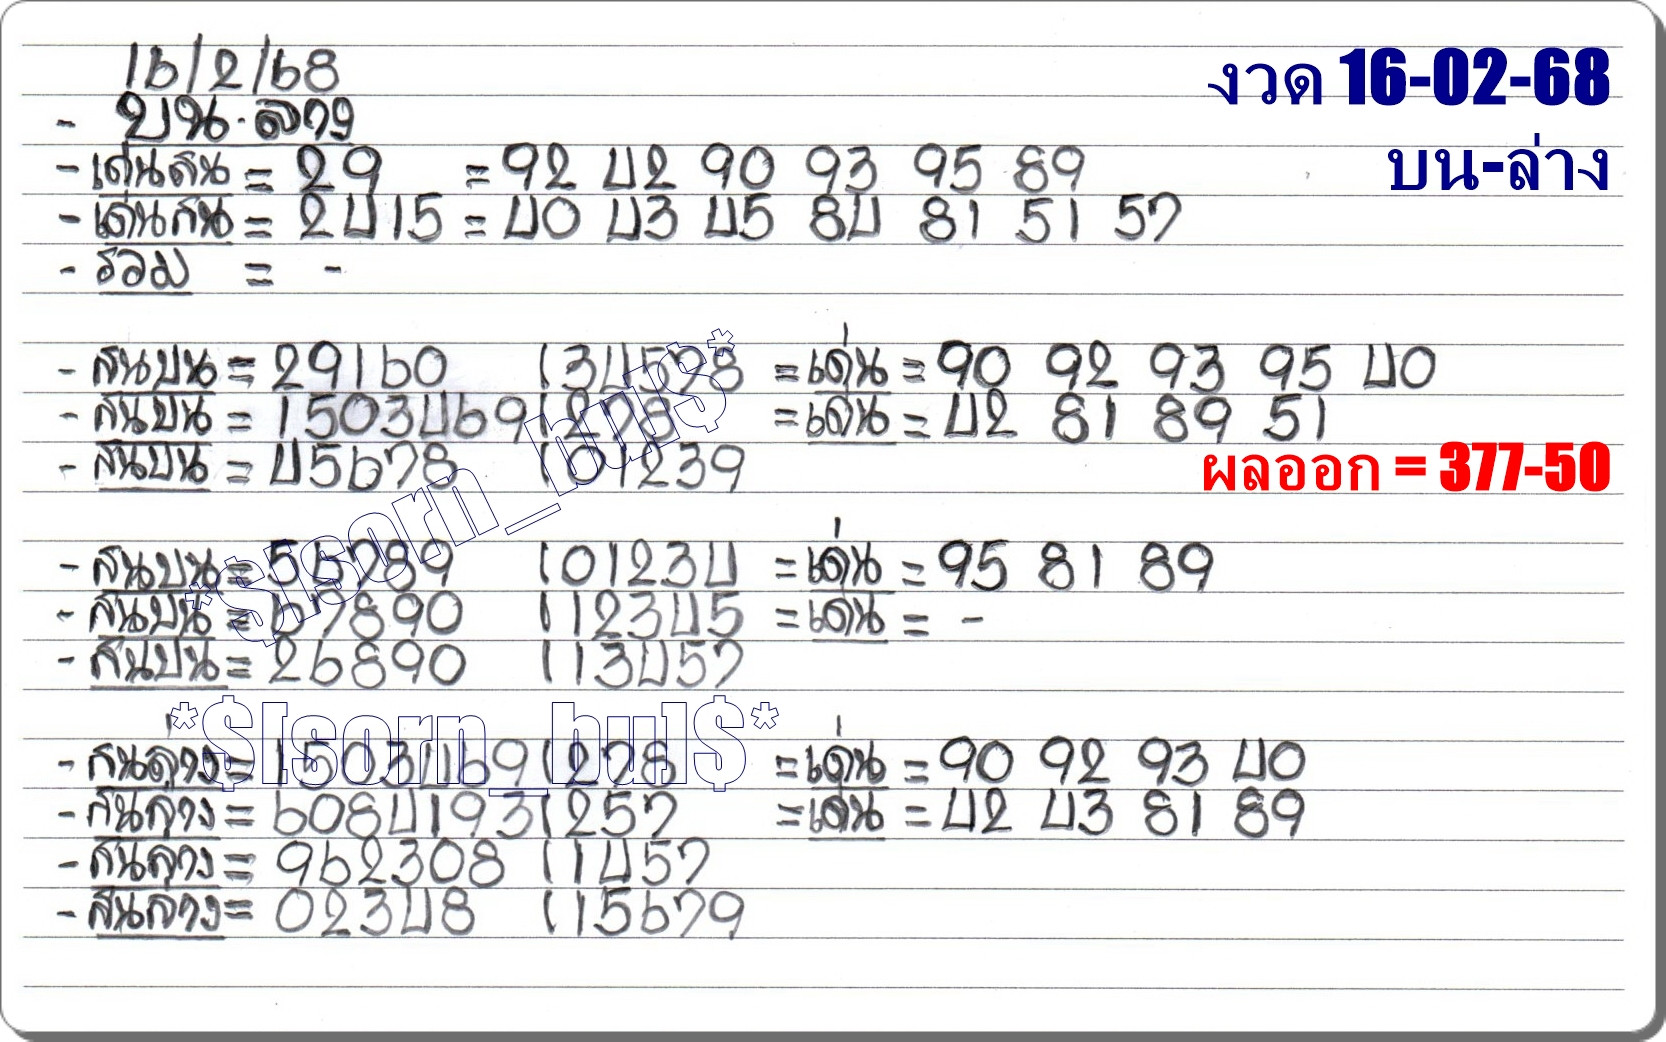 16/2/68
งวด 16-02-68
- บน.ล่าง
บน-ล่าง
- เด่นสน = 29 = 92 42 90 93 95 89
- เด่นสน = 2415 = 40 43 45 84 81 51 57
- รวม = -
- สนบน = 29160 ( 34578 = เด่น = 90 92 93 95 40
- สนบน = 1503469 ( 278 = เด่น = 42 81 89 51
- สนบน = 45678 ( 01239
ผลออก = 377-50
- สนบน = 56789 ( 01234 = เด่น = 95 81 89
- สนบน = 67890 ( 12345 = เด่น = -
- สนบน = 26890 ( 13457
*$[sorn_bu]$*
*$[sorn_bu]$*
- สนล่าง = 1503469 ( 278 = เด่น = 90 92 93 40
- สนล่าง = 6084193 ( 257 = เด่น = 42 43 81 89
- สนล่าง = 962308 ( 1457
- สนล่าง = 02348 ( 15679